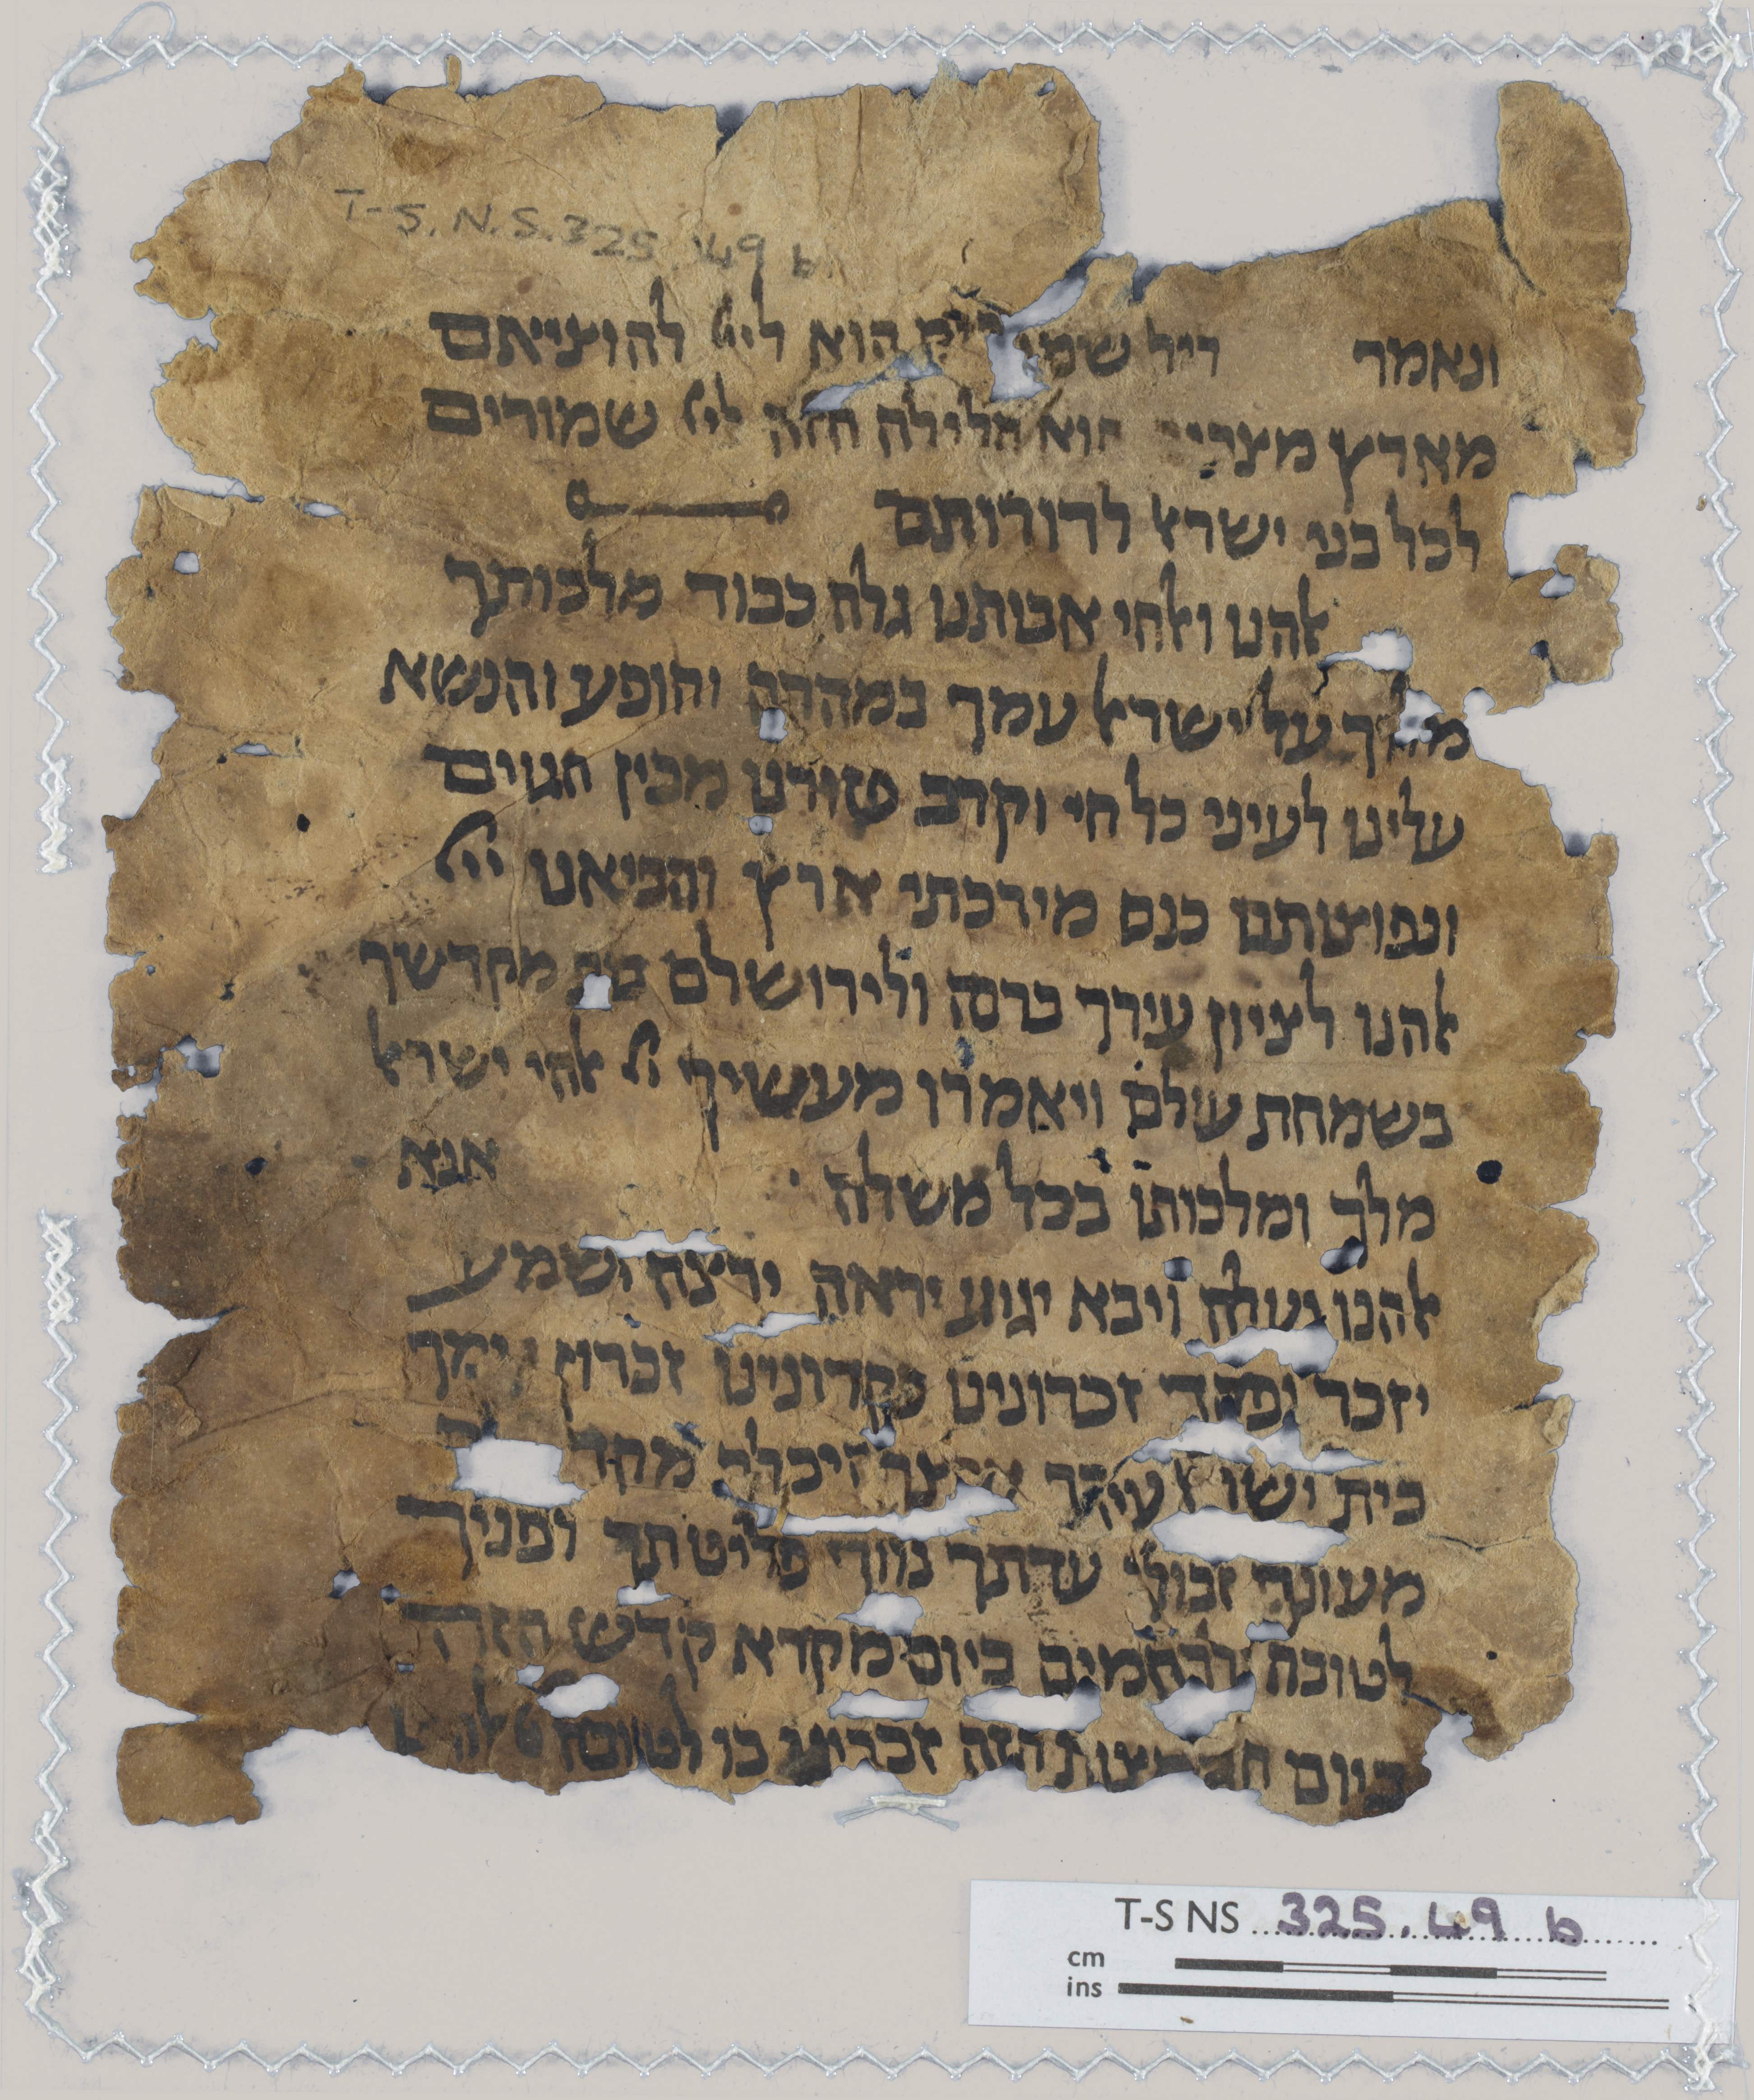 T-S. N.S. 325.149 b
ונאמר ליל שמורים הוא לייי להוציאם
מארץ מצרים הוא הלילה הזה לייי שמורים
לכל בני ישראל לדורותם
אלהנו ואלהי אבותנו גלה כבוד מלכותך
מהר על ישראל עמך במהרה והופע והנשא
עלינו לעיני כל חי וקרב פזורנו מבין הגוים
ונפוצותם כנס מירכתי ארץ והביאנו ייי
אלהנו לציון עירך ברנה ולירושלם בית מקדשך
בשמחת עולם ויאמרו מעשיך ייי אלהי ישראל
מלך ומלכותו בכל משלה אנא
אלהנו יעלה ויבא יגיע יראה ירצה ישמע
יזכר ופקד זכרונינו פקדונינו זכרון עמך
בית ישראל עירך היכלך
זבולך עדתך פליטתך ופניך
לטובה לרחמים ביום מקרא קדש הזה
ביום חג המצות הזה זכרינו בו לטובה
T-S NS 325.49 b
cm
ins